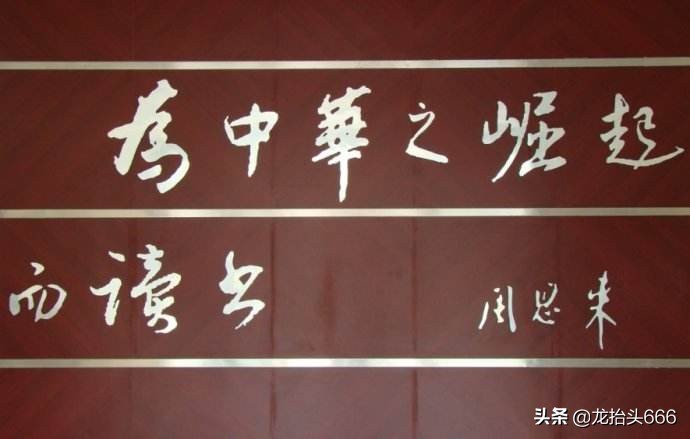 為中華之崛起
而读书 周恩来
头条 @龙抬头666